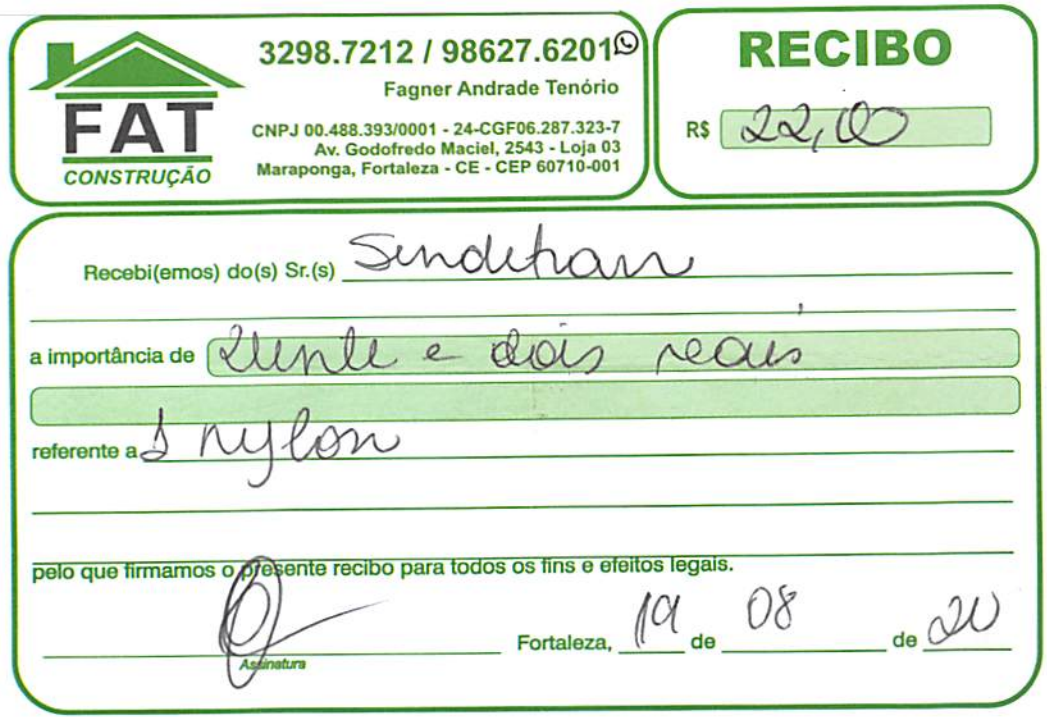 FAT
CONSTRUÇÃO
3298.7212 / 98627.6201
Fagner Andrade Tenório
CNPJ 00.488.393/0001 - 24-CGF06.287.323-7
Av. Godofredo Maciel, 2543 - Loja 03
Maraponga, Fortaleza - CE - CEP 60710-001
RECIBO
R$ 22,00
Recebi(emos) do(s) Sr.(s) Sindetran
a importância de Vinte e dois reais
referente a 1 nylon
pelo que firmamos o presente recibo para todos os fins e efeitos legais.
Assinatura
Fortaleza, 19 de 08 de 20